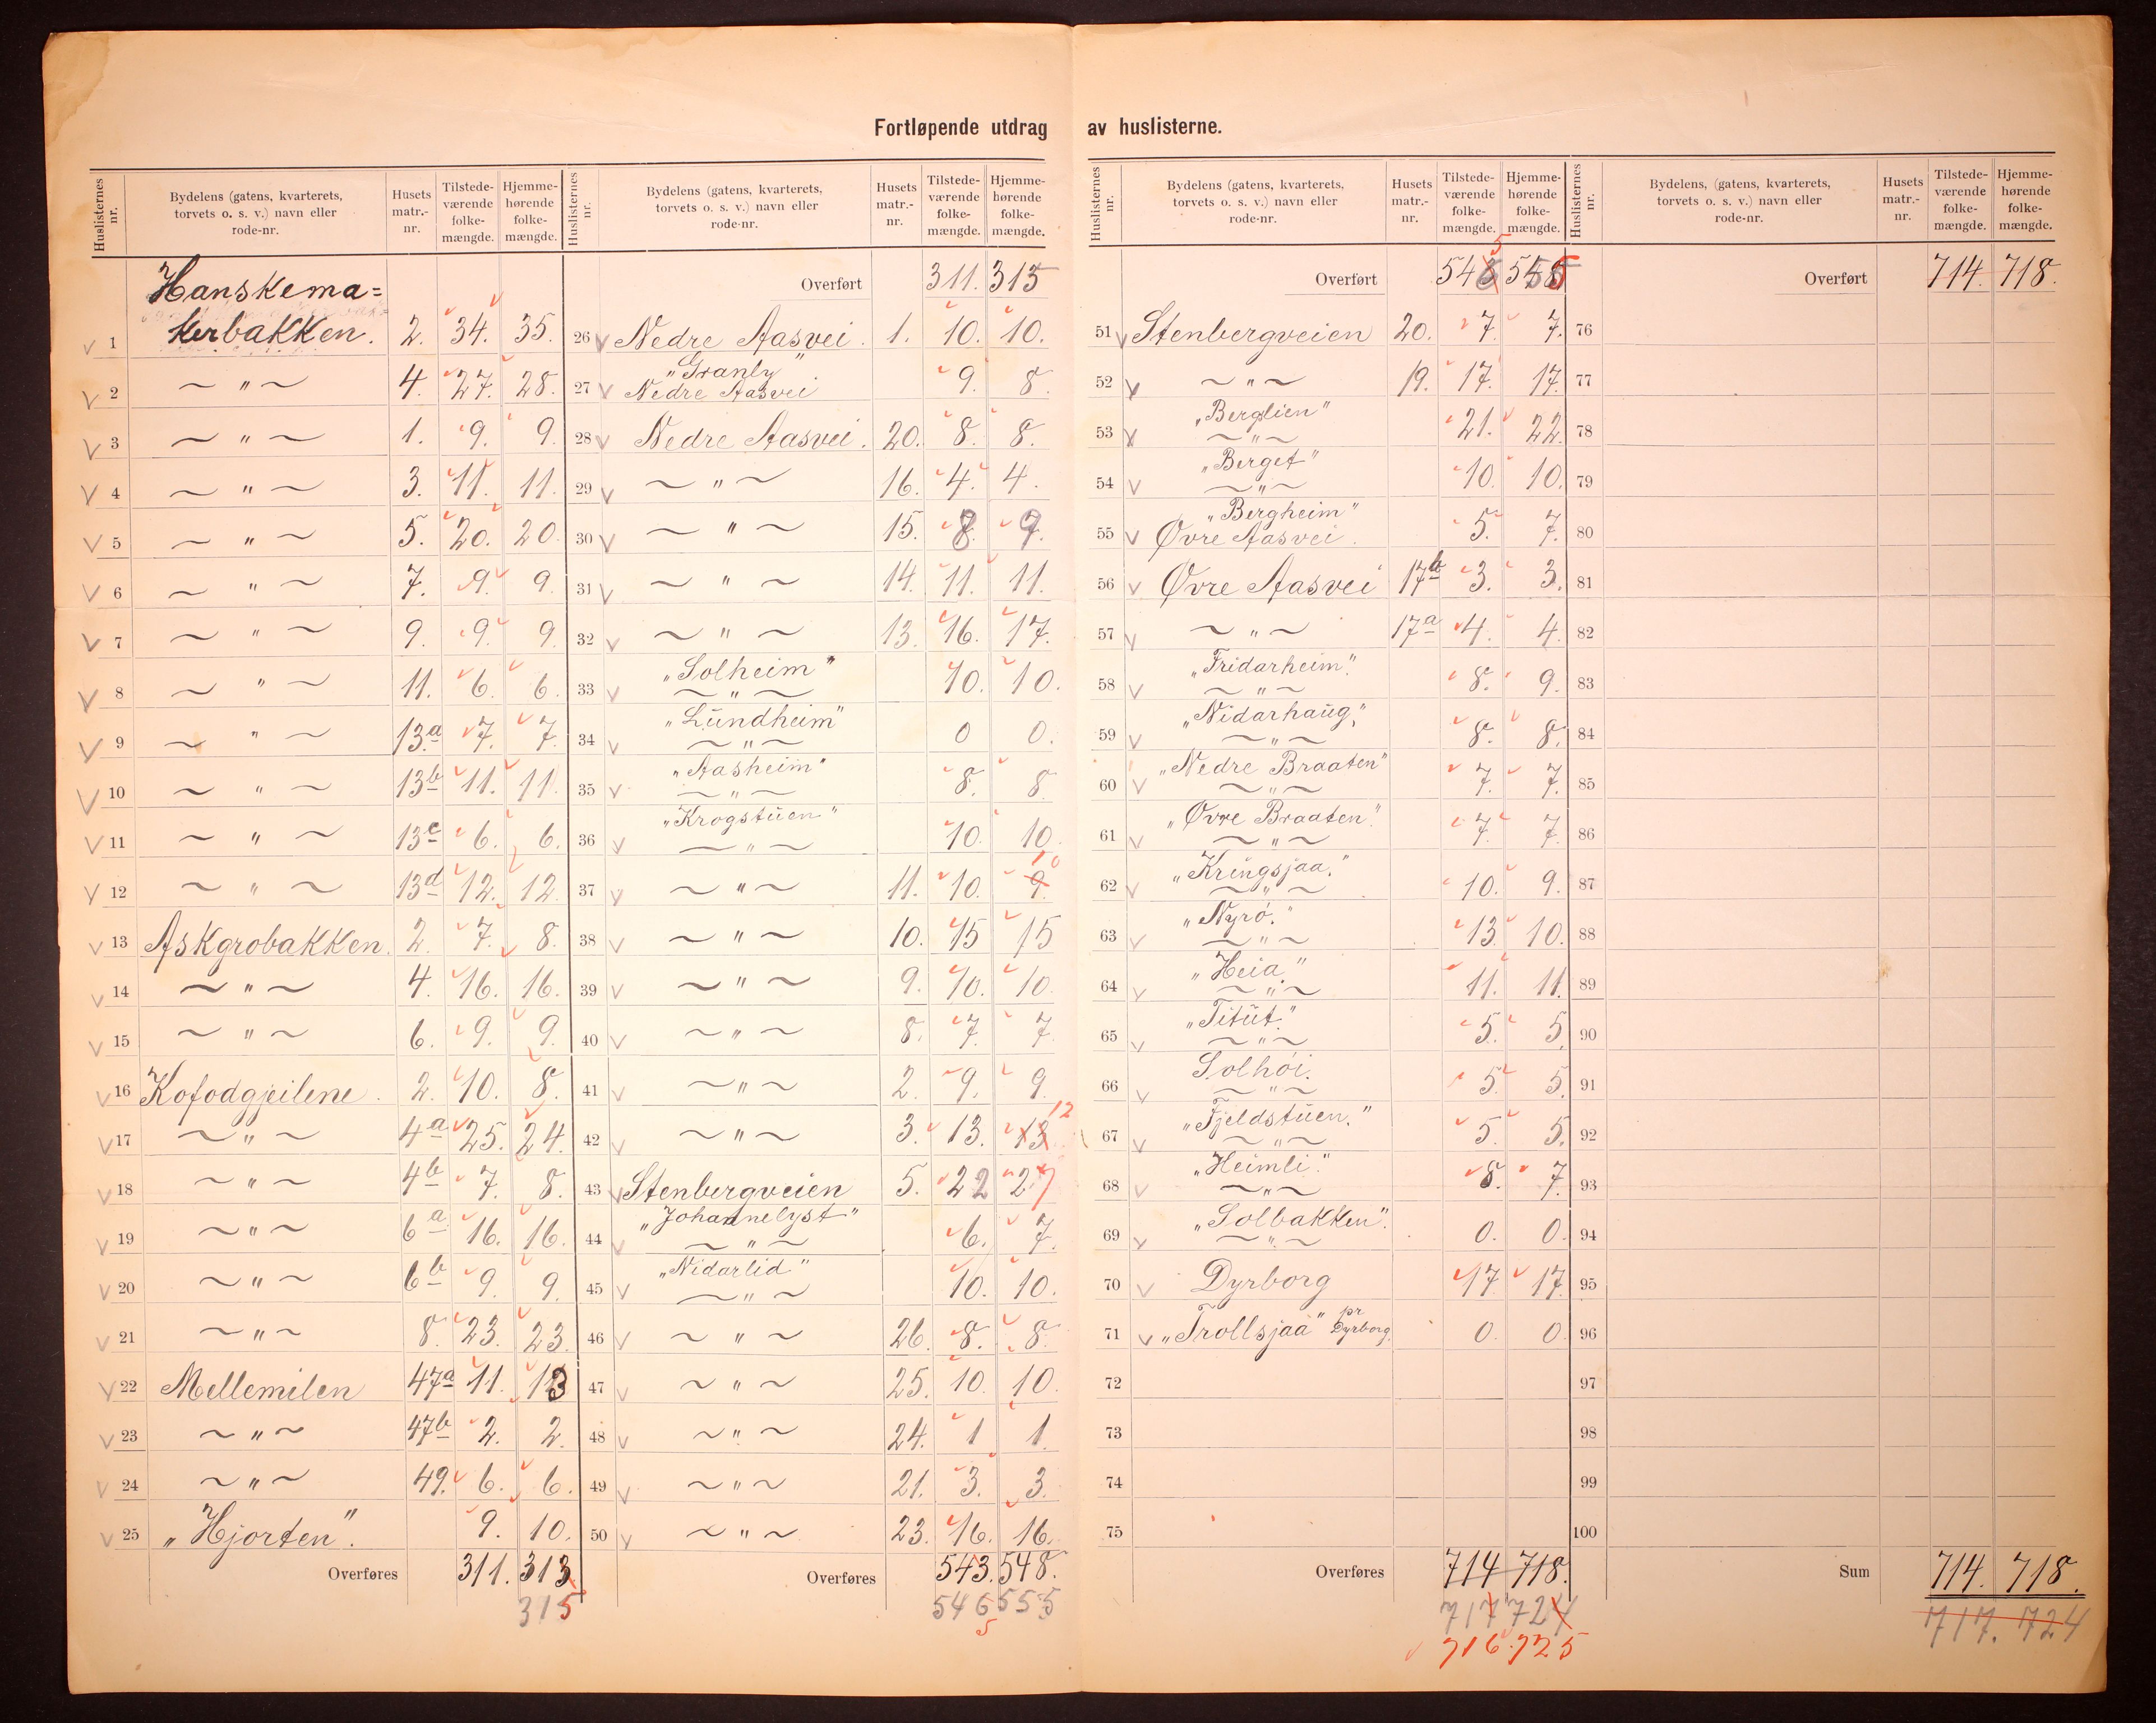 Fortløpende utdrag av huslisterne.
Huslisternes nr. | Bydelens (gatens, kvarterets, torvets o. s. v.) navn eller rode-nr. | Husets matr.-nr. | Tilstedeværende folkemængde. | Hjemmehørende folkemængde.
Hanskema=
1 kerbakken. 2. 34. 35.
2 ~ " ~ 4. 27. 28.
3 ~ " ~ 1. 9. 9.
4 ~ " ~ 3. 11. 11.
5 ~ " ~ 5. 20. 20.
6 ~ " ~ 7. 9. 9.
7 ~ " ~ 9. 9. 9.
8 ~ " ~ 11. 6. 6.
9 ~ " ~ 13.a 7. 7.
10 ~ " ~ 13b 11. 11.
11 ~ " ~ 13c 6. 6.
12 ~ " ~ 13d 12. 12.
13 Askgrobakken. 2. 7. 8.
14 ~ " ~ 4. 16. 16.
15 ~ " ~ 6. 9. 9.
16 Kofodgjeilene. 2. 10. 8.
17 ~ " ~ 4a 25. 24.
18 ~ " ~ 4b 7. 8.
19 ~ " ~ 6a 16. 16.
20 ~ " ~ 6b 9. 9.
21 ~ " ~ 8. 23. 23.
22 Mellemilen 47a 11. 13
23 ~ " ~ 47b 2. 2.
24 ~ " ~ 49. 6. 6.
25 „Hjorten". 9. 10.
Overføres 311. 313
315
Huslisternes nr. | Bydelens (gatens, kvarterets, torvets o. s. v.) navn eller rode-nr. | Husets matr.-nr. | Tilstedeværende folkemængde. | Hjemmehørende folkemængde.
Overført 311. 315
26 Nedre Aasvei. 1. 10. 10.
„Granly"
27 Nedre Aasvei 9. 8.
28 Nedre Aasvei. 20. 8. 8.
29 ~ " ~ 16. 4. 4.
30 ~ " ~ 15. 8. 9.
31 ~ " ~ 14. 11. 11.
32 ~ " ~ 13. 16. 17.
„Solheim"
33 ~ " ~ 10. 10.
„Lundheim"
34 ~ " ~ 0 0.
„Aasheim"
35 ~ " ~ 8. 8
„Krogstuen"
36 ~ " ~ 10. 10.
37 ~ " ~ 11. 10. 9. 10
38 ~ " ~ 10. 15 15
39 ~ " ~ 9. 10. 10.
40 ~ " ~ 8. 7. 7.
41 ~ " ~ 2. 9. 9.
42 ~ " ~ 3. 13. 13 12
43 Stenbergveien 5. 22 27
„Johannelyst"
44 ~ " ~ 6. 7.
„Nidarlid"
45 ~ " ~ 10. 10.
46 ~ " ~ 26. 8. 8.
47 ~ " ~ 25. 10. 10.
48 ~ " ~ 24. 1 1.
49 ~ " ~ 21. 3. 3.
50 ~ " ~ 23. 16. 16.
Overføres 543. 548.
546 555
5
Huslisternes nr. | Bydelens (gatens, kvarterets, torvets o. s. v.) navn eller rode-nr. | Husets matr.-nr. | Tilstedeværende folkemængde. | Hjemmehørende folkemængde.
5
Overført
51 Stenbergveien 20. 7. 7.
52 ~ " ~ 19. 17. 17.
„Berglien"
53 ~ " ~ 21. 22.
„Berget"
54 ~ " ~ 10. 10.
„Bergheim"
55 Øvre Aasvei. 5. 7.
56 Øvre Aasvei 17b 3. 3.
57 ~ " ~ 17a 4. 4.
„Fridarheim".
58 ~ " ~ 8. 9.
„Nidarhaug"
59 ~ " ~ 8. 8.
„Nedre Braaten"
60 ~ " ~ 7. 7.
„Øvre Braaten".
61 ~ " ~ 7. 7.
„Kringsjaa."
62 ~ " ~ 10. 9.
„Nyrö."
63 ~ " ~ 13. 10.
„Heia"
64 ~ " ~ 11. 11.
„Titut."
65 ~ " ~ 5. 5.
Solhöi.
66 ~ " ~ 5. 5.
„Fjeldstuen."
67 ~ " ~ 5. 5.
„Heimli".
68 ~ " ~ 8. 7.
„Solbakken".
69 ~ " ~ 0. 0.
70 Dyrborg 17. 17.
71 „Trollsjaa" pr Dyrborg. 0. 0.
72
73
74
75
Overføres 714 718.
717 724
716. 725
Huslisternes nr. | Bydelens, (gatens, kvarterets, torvets o. s. v.) navn eller rode-nr. | Husets matr.-nr. | Tilstedeværende folkemængde. | Hjemmehørende folkemængde.
Overført 714. 718.
76
77
78
79
80
81
82
83
84
85
86
87
88
89
90
91
92
93
94
95
96
97
98
99
100
Sum 714. 718.
717. 724